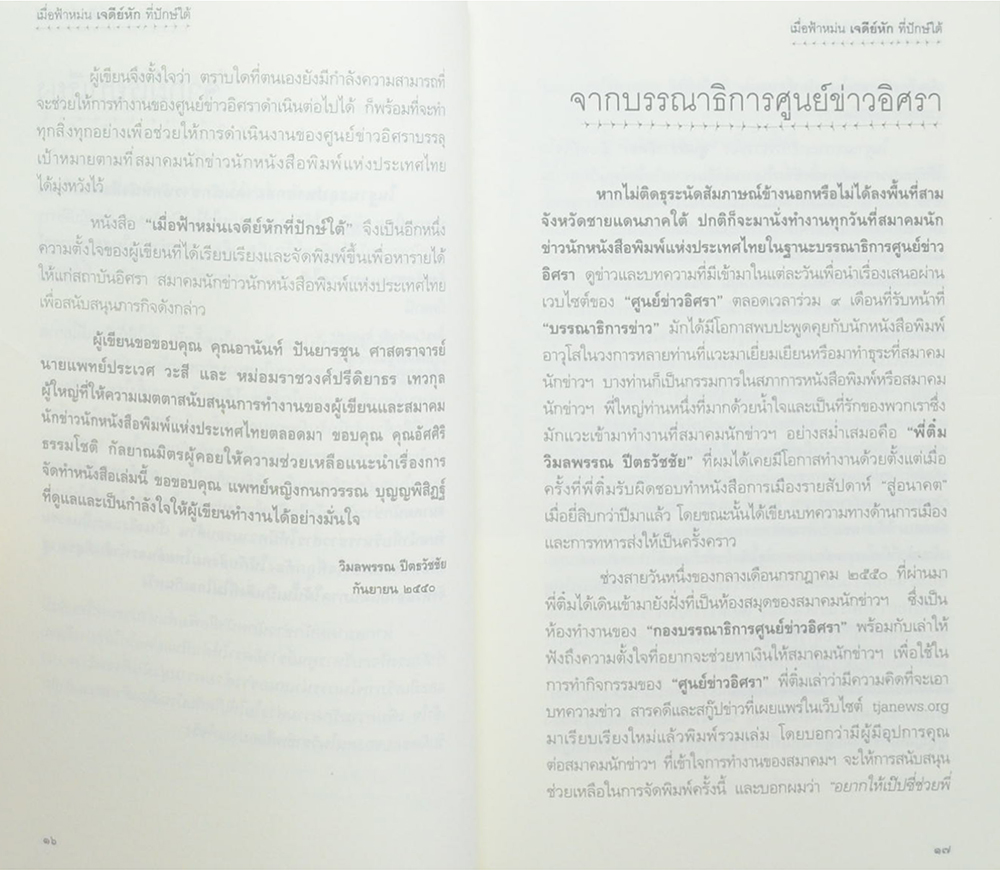 เมื่อฟ้าหม่น เจดีย์หัก ที่ปักษ์ใต้
ผู้เขียนจึงตั้งใจว่า ตราบใดที่ตนเองยังมีกำลังความสามารถที่
จะช่วยให้การทำงานของศูนย์ข่าวอิศราดำเนินต่อไปได้ ก็พร้อมที่จะทำ
ทุกสิ่งทุกอย่างเพื่อช่วยให้การดำเนินงานของศูนย์ข่าวอิศราบรรลุ
เป้าหมายตามที่สมาคมนักข่าวนักหนังสือพิมพ์แห่งประเทศไทย
ได้มุ่งหวังไว้
หนังสือ “เมื่อฟ้าหม่นเจดีย์หักที่ปักษ์ใต้” จึงเป็นอีกหนึ่ง
ความตั้งใจของผู้เขียนที่ได้เรียบเรียงและจัดพิมพ์ขึ้นเพื่อหารายได้
ให้แก่สถาบันอิศรา สมาคมนักข่าวนักหนังสือพิมพ์แห่งประเทศไทย
เพื่อสนับสนุนภารกิจดังกล่าว
ผู้เขียนขอขอบคุณ คุณอานันท์ ปันยารชุน ศาสตราจารย์
นายแพทย์ประเวศ วะสี และ หม่อมราชวงศ์ปรีดิยาธร เทวกุล
ผู้ใหญ่ที่ให้ความเมตตาสนับสนุนการทำงานของผู้เขียนและสมาคม
นักข่าวนักหนังสือพิมพ์แห่งประเทศไทยตลอดมา ขอบคุณ คุณอัศศิริ
ธรรมโชติ กัลยาณมิตรผู้คอยให้ความช่วยเหลือแนะนำเรื่องการ
จัดทำหนังสือเล่มนี้ ขอขอบคุณ แพทย์หญิงกนกวรรณ บุญญพิสิฏฐ์
ที่ดูแลและเป็นกำลังใจให้ผู้เขียนทำงานได้อย่างมั่นใจ
วิมลพรรณ ปีตธวัชชัย
กันยายน ๒๕๕๐
๑๖
เมื่อฟ้าหม่น เจดีย์หัก ที่ปักษ์ใต้
จากบรรณาธิการศูนย์ข่าวอิศรา
หากไม่ติดธุระนัดสัมภาษณ์ข้างนอกหรือไม่ได้ลงพื้นที่สาม
จังหวัดชายแดนภาคใต้ ปกติก็จะมานั่งทำงานทุกวันที่สมาคมนัก
ข่าวนักหนังสือพิมพ์แห่งประเทศไทยในฐานะบรรณาธิการศูนย์ข่าว
อิศรา ดูข่าวและบทความที่มีเข้ามาในแต่ละวันเพื่อนำเรื่องเสนอผ่าน
เวบไซต์ของ “ศูนย์ข่าวอิศรา” ตลอดเวลาร่วม ๙ เดือนที่รับหน้าที่
“บรรณาธิการข่าว” มักได้มีโอกาสพบปะพูดคุยกับนักหนังสือพิมพ์
อาวุโสในวงการหลายท่านที่แวะมาเยี่ยมเยียนหรือมาทำธุระที่สมาคม
นักข่าวฯ บางท่านก็เป็นกรรมการในสภาการหนังสือพิมพ์หรือสมาคม
นักข่าวฯ พี่ใหญ่ท่านหนึ่งที่มากด้วยน้ำใจและเป็นที่รักของพวกเราซึ่ง
มักแวะเข้ามาทำงานที่สมาคมนักข่าวฯ อย่างสม่ำเสมอคือ “พี่ติ๋ม
วิมลพรรณ ปีตธวัชชัย” ที่ผมได้เคยมีโอกาสทำงานด้วยตั้งแต่เมื่อ
ครั้งที่พี่ติ๋มรับผิดชอบทำหนังสือการเมืองรายสัปดาห์ “สู่อนาคต”
เมื่อยี่สิบกว่าปีมาแล้ว โดยขณะนั้นได้เขียนบทความทางด้านการเมือง
และการทหารส่งให้เป็นครั้งคราว
ช่วงสายวันหนึ่งของกลางเดือนกรกฎาคม ๒๕๕๐ ที่ผ่านมา
พี่ติ๋มได้เดินเข้ามายังฝั่งที่เป็นห้องสมุดของสมาคมนักข่าวฯ ซึ่งเป็น
ห้องทำงานของ “กองบรรณาธิการศูนย์ข่าวอิศรา” พร้อมกับเล่าให้
ฟังถึงความตั้งใจที่อยากจะช่วยหาเงินให้สมาคมนักข่าวฯ เพื่อใช้ใน
การทำกิจกรรมของ “ศูนย์ข่าวอิศรา” พี่ติ๋มเล่าว่ามีความคิดที่จะเอา
บทความข่าว สารคดีและสกู๊ปข่าวที่เผยแพร่ในเว็บไซต์ tjanews.org
มาเรียบเรียงใหม่แล้วพิมพ์รวมเล่ม โดยบอกว่ามีผู้มีอุปการคุณ
ต่อสมาคมนักข่าวฯ ที่เข้าใจการทำงานของสมาคมฯ จะให้การสนับสนุน
ช่วยเหลือในการจัดพิมพ์ครั้งนี้ และบอกผมว่า “อยากให้เป๊ปซี่ช่วยพี่
๑๗